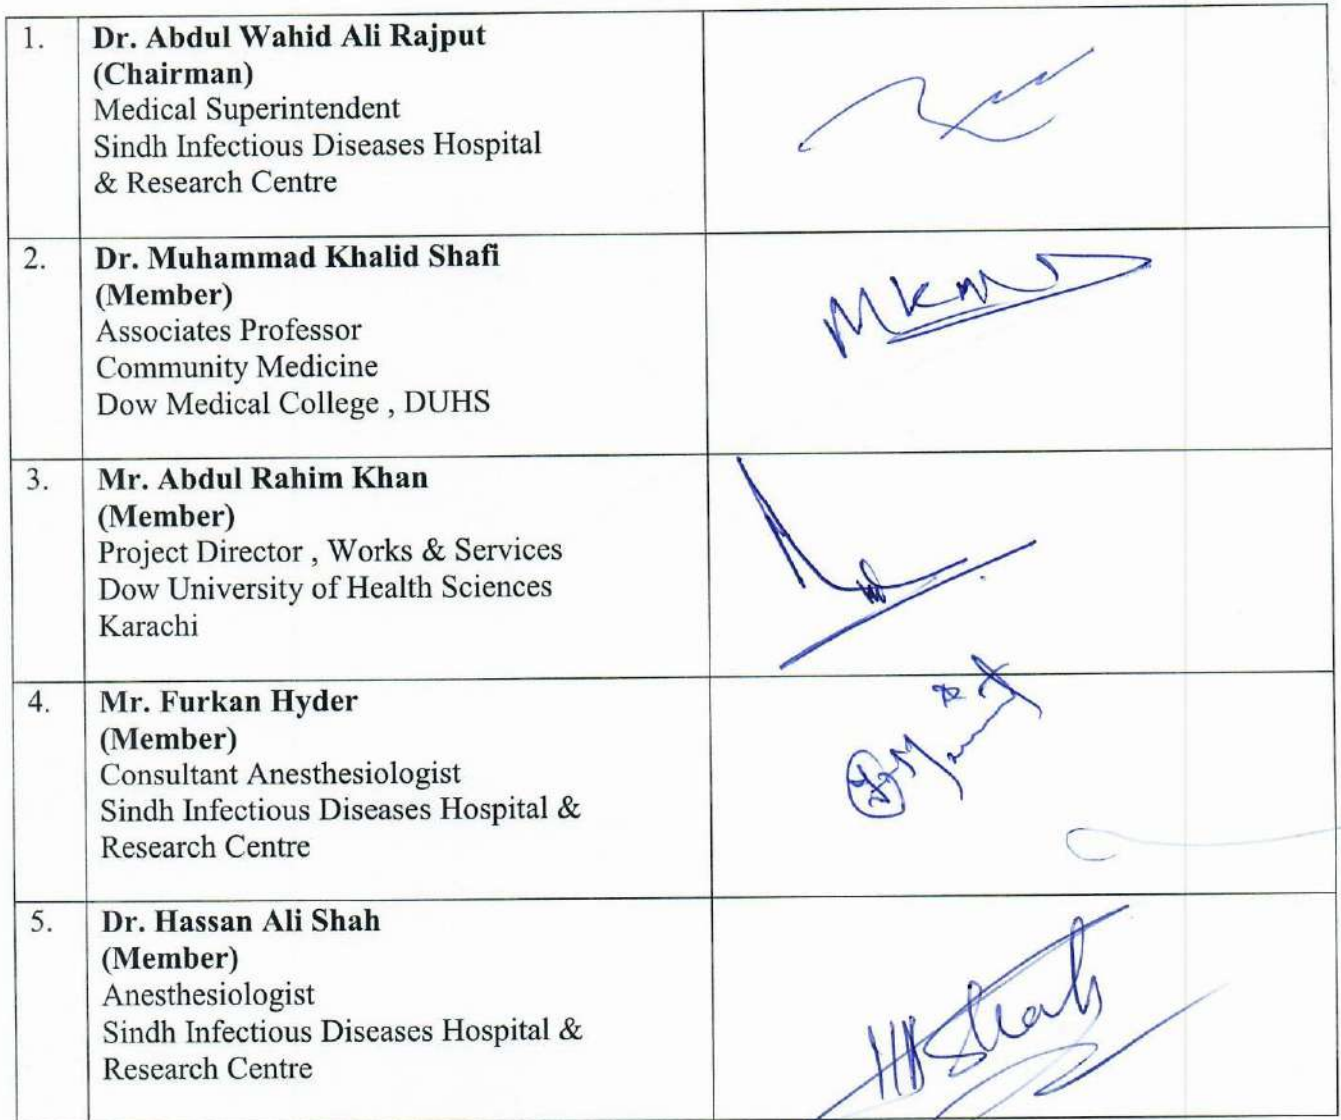 1.
Dr. Abdul Wahid Ali Rajput
(Chairman)
Medical Superintendent
Sindh Infectious Diseases Hospital
& Research Centre
2.
Dr. Muhammad Khalid Shafi
(Member)
Associates Professor
Community Medicine
Dow Medical College , DUHS
3.
Mr. Abdul Rahim Khan
(Member)
Project Director , Works & Services
Dow University of Health Sciences
Karachi
4.
Mr. Furkan Hyder
(Member)
Consultant Anesthesiologist
Sindh Infectious Diseases Hospital &
Research Centre
5.
Dr. Hassan Ali Shah
(Member)
Anesthesiologist
Sindh Infectious Diseases Hospital &
Research Centre
HAShah